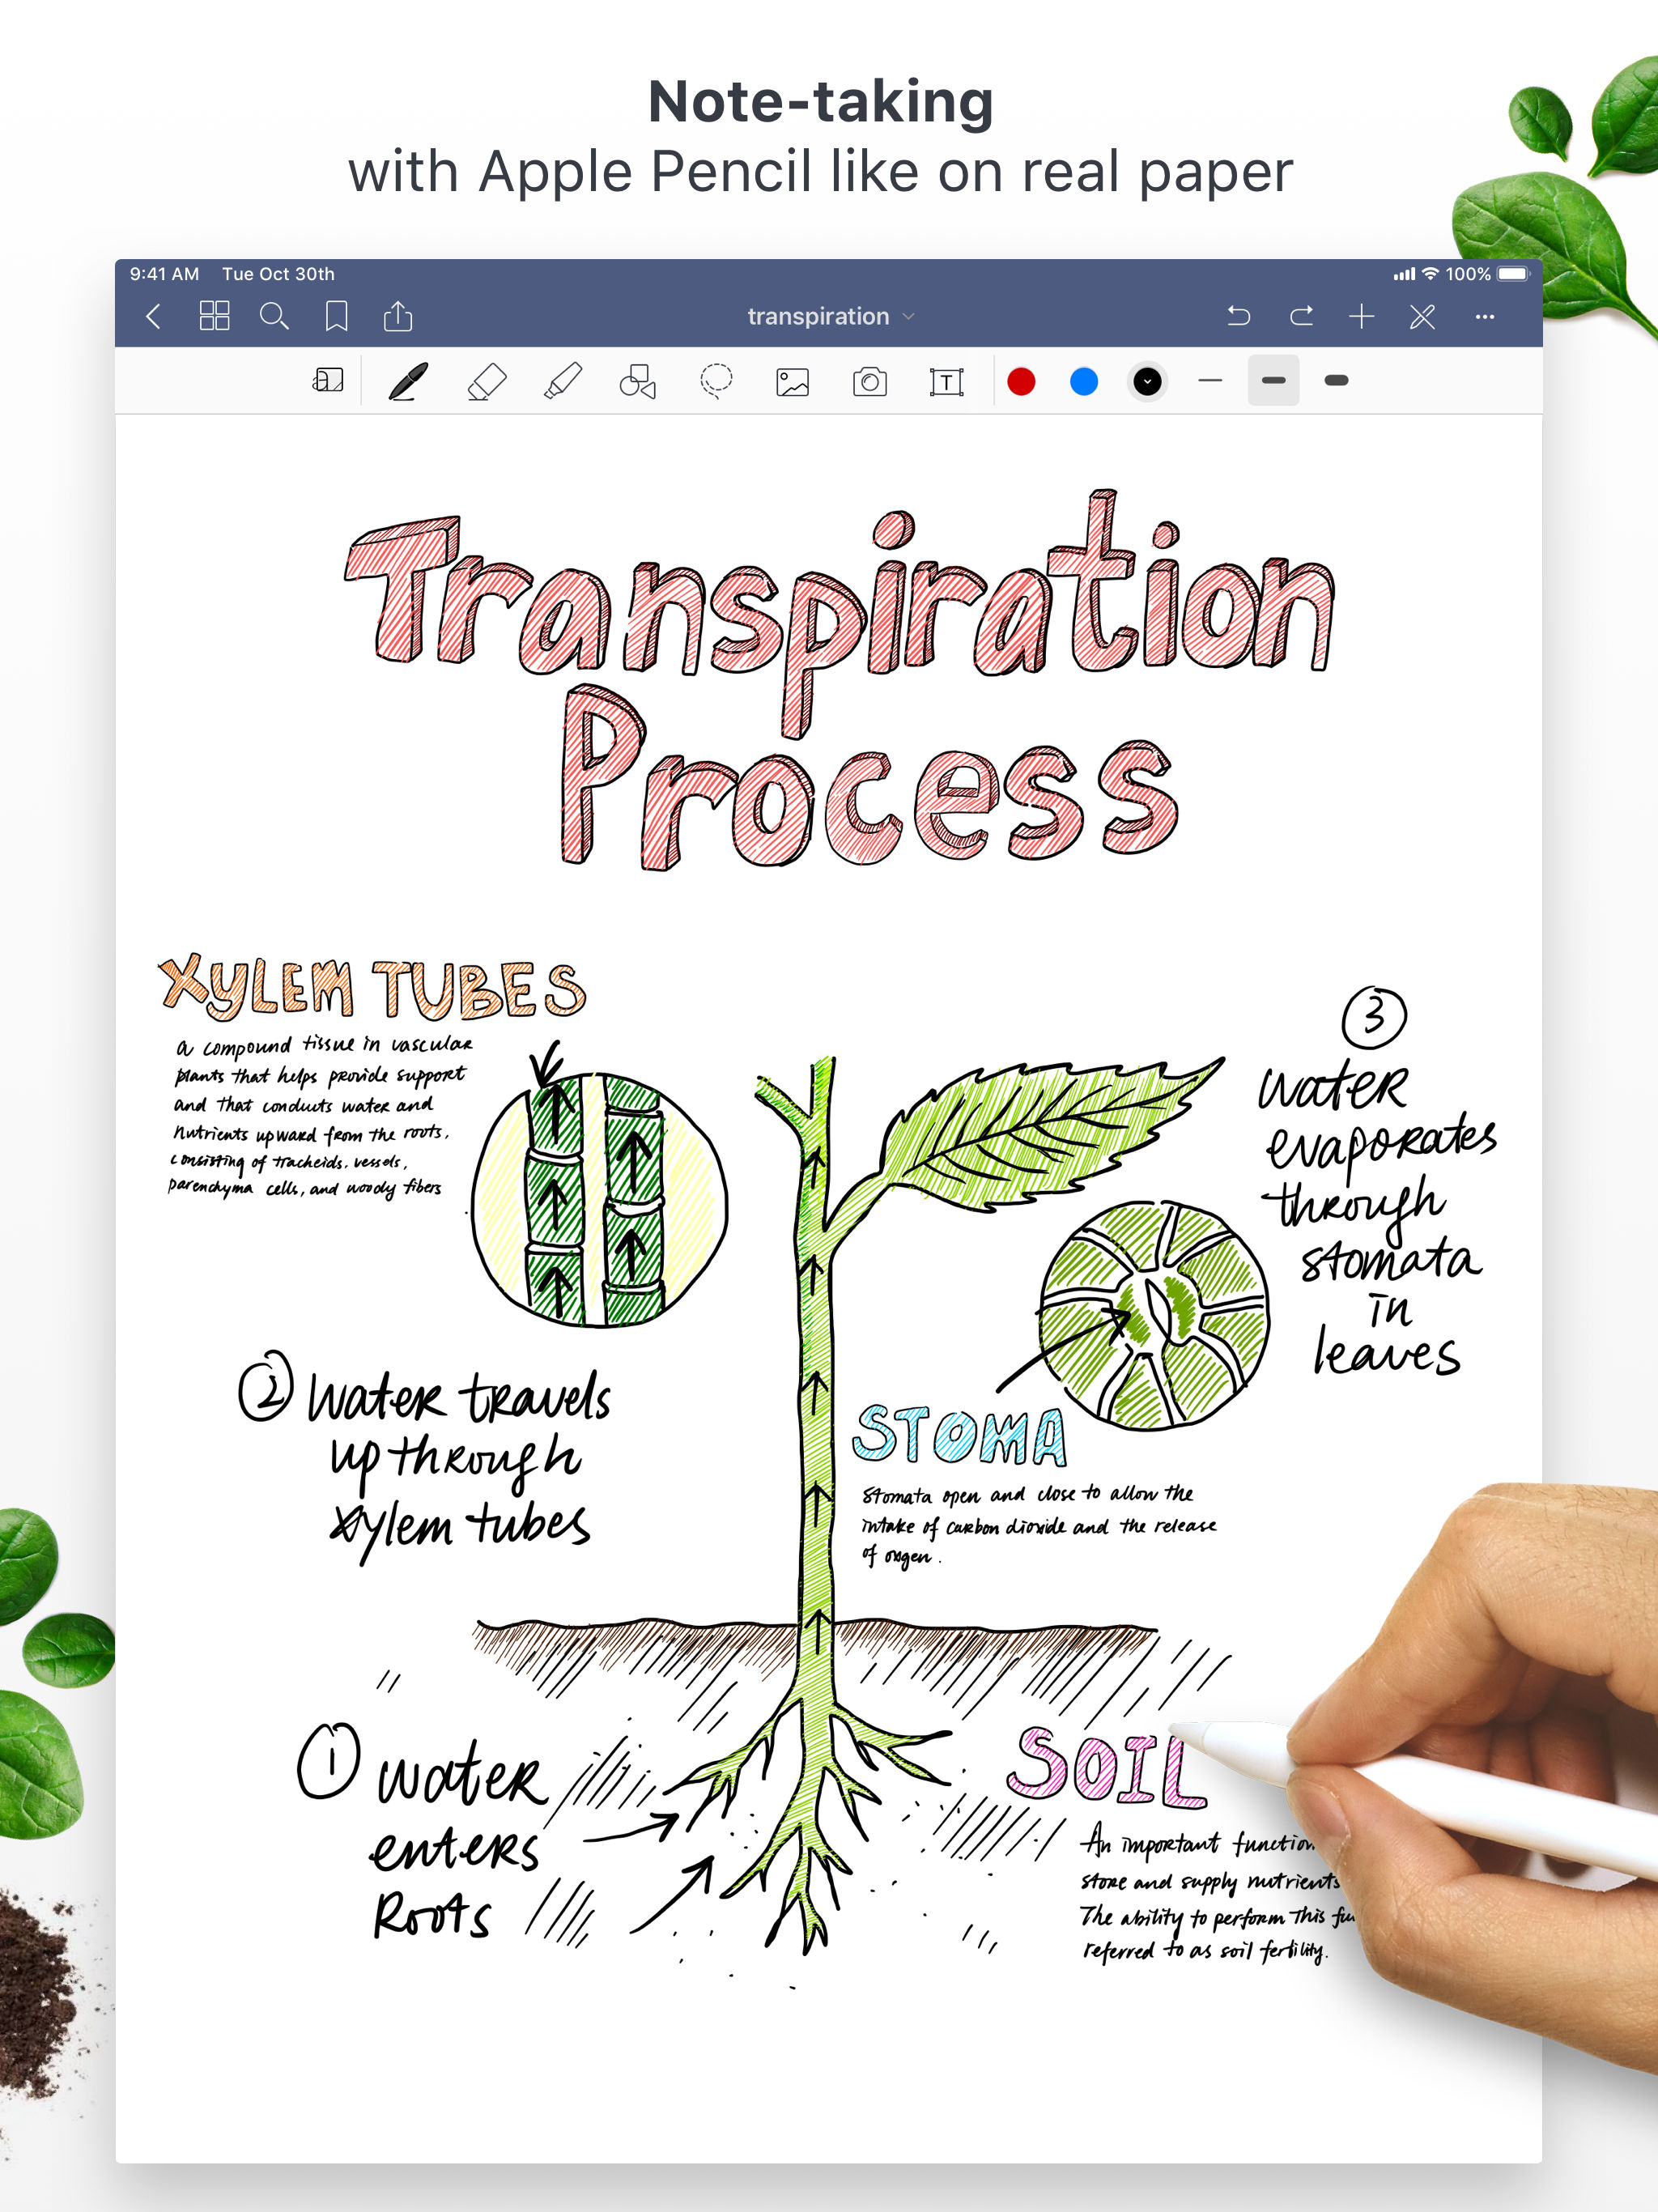 Note-taking
with Apple Pencil like on real paper
9:41 AM Tue Oct 30th
100%
transpiration
T
Transpiration
Process
XYLEM TUBES
a compound tissue in vascular
plants that helps provide support
and that conducts water and
nutrients upward from the roots,
consisting of tracheids, vessels,
parenchyma cells, and woody fibers
3
water
evaporates
through
stomata
in
leaves
2 Water travels
up through
xylem tubes
STOMA
Stomata open and close to allow the
intake of carbon dioxide and the release
of oxgen.
1 water
enters
Roots
SOIL
An important function
store and supply nutrients
The ability to perform this fu
referred to as soil fertility.